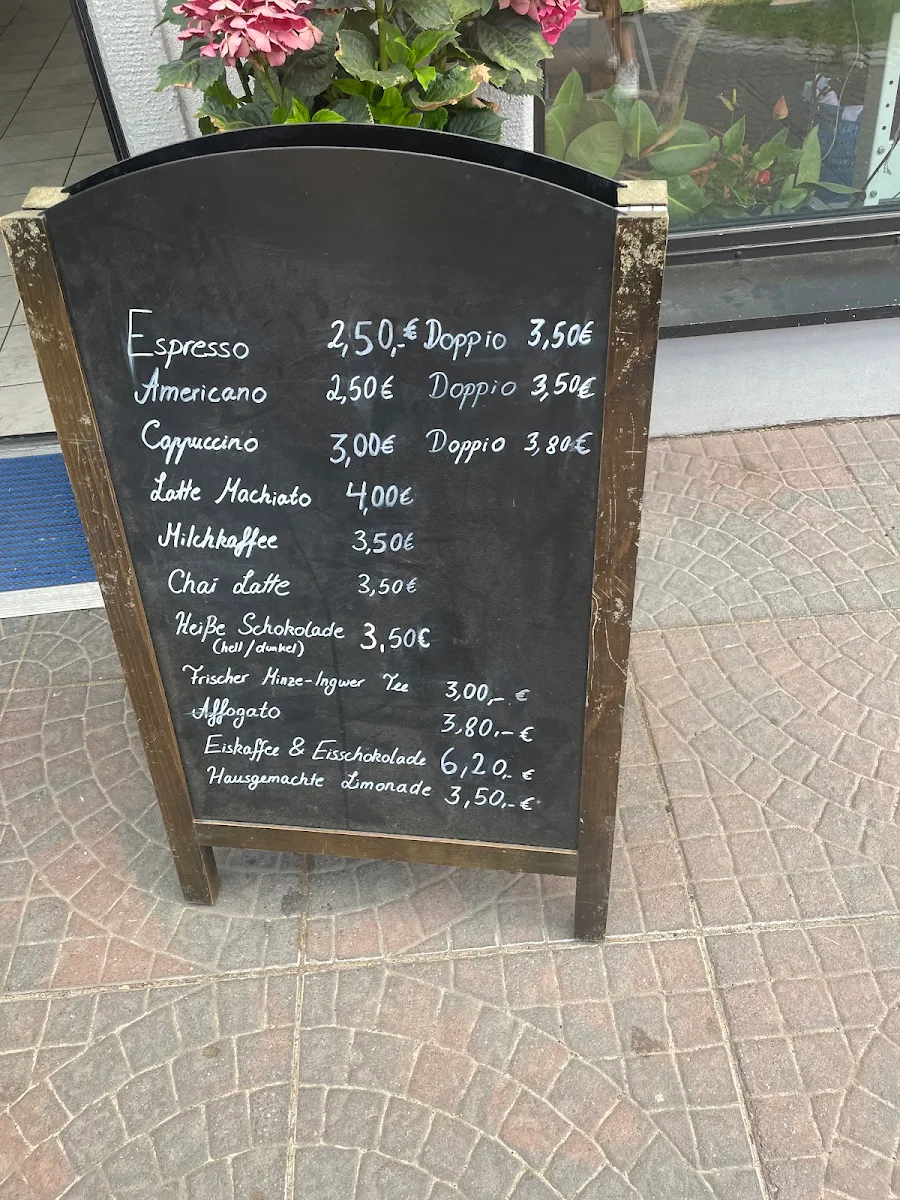 Espresso 2,50,-€ Doppio 3,50€
Americano 2,50€ Doppio 3,50€
Cappuccino 3,00€ Doppio 3,80€
Latte Machiato 4,00€
Milchkaffee 3,50€
Chai Latte 3,50€
Heiße Schokolade 3,50€
(hell/dunkel)
Frischer Minze-Ingwer Tee 3,00,- €
Affogato 3,80,-€
Eiskaffee & Eisschokolade 6,20,- €
Hausgemachte Limonade 3,50,-€